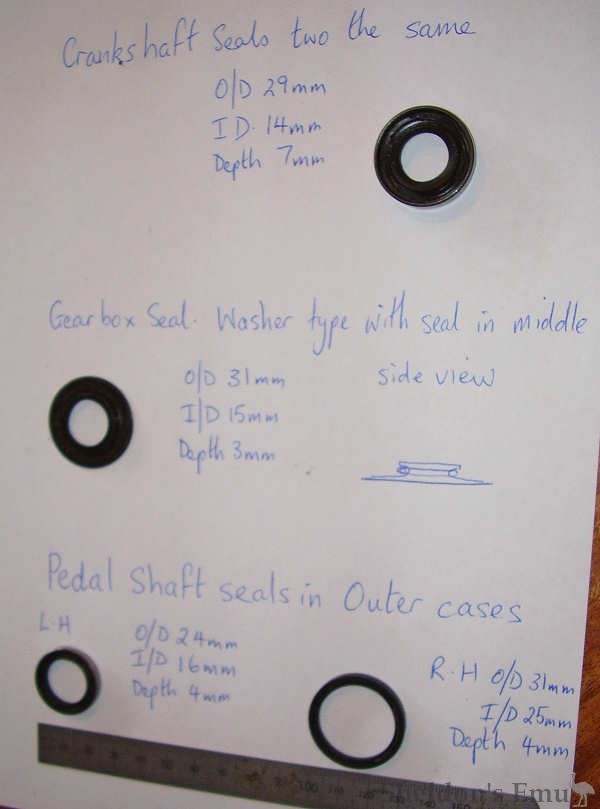 Crankshaft Seals two the same
O/D 29mm
I D. 14mm
Depth 7mm
Gearbox Seal. Washer type with seal in middle
O/D 31mm
side view
I/D 15mm
Depth 3mm
Pedal Shaft seals in Outer cases
L.H
O/D 24mm
I/D 16mm
Depth 4mm
R.H O/D 31mm
I/D 25mm
Depth 4mm
100
Sheldon's Emu